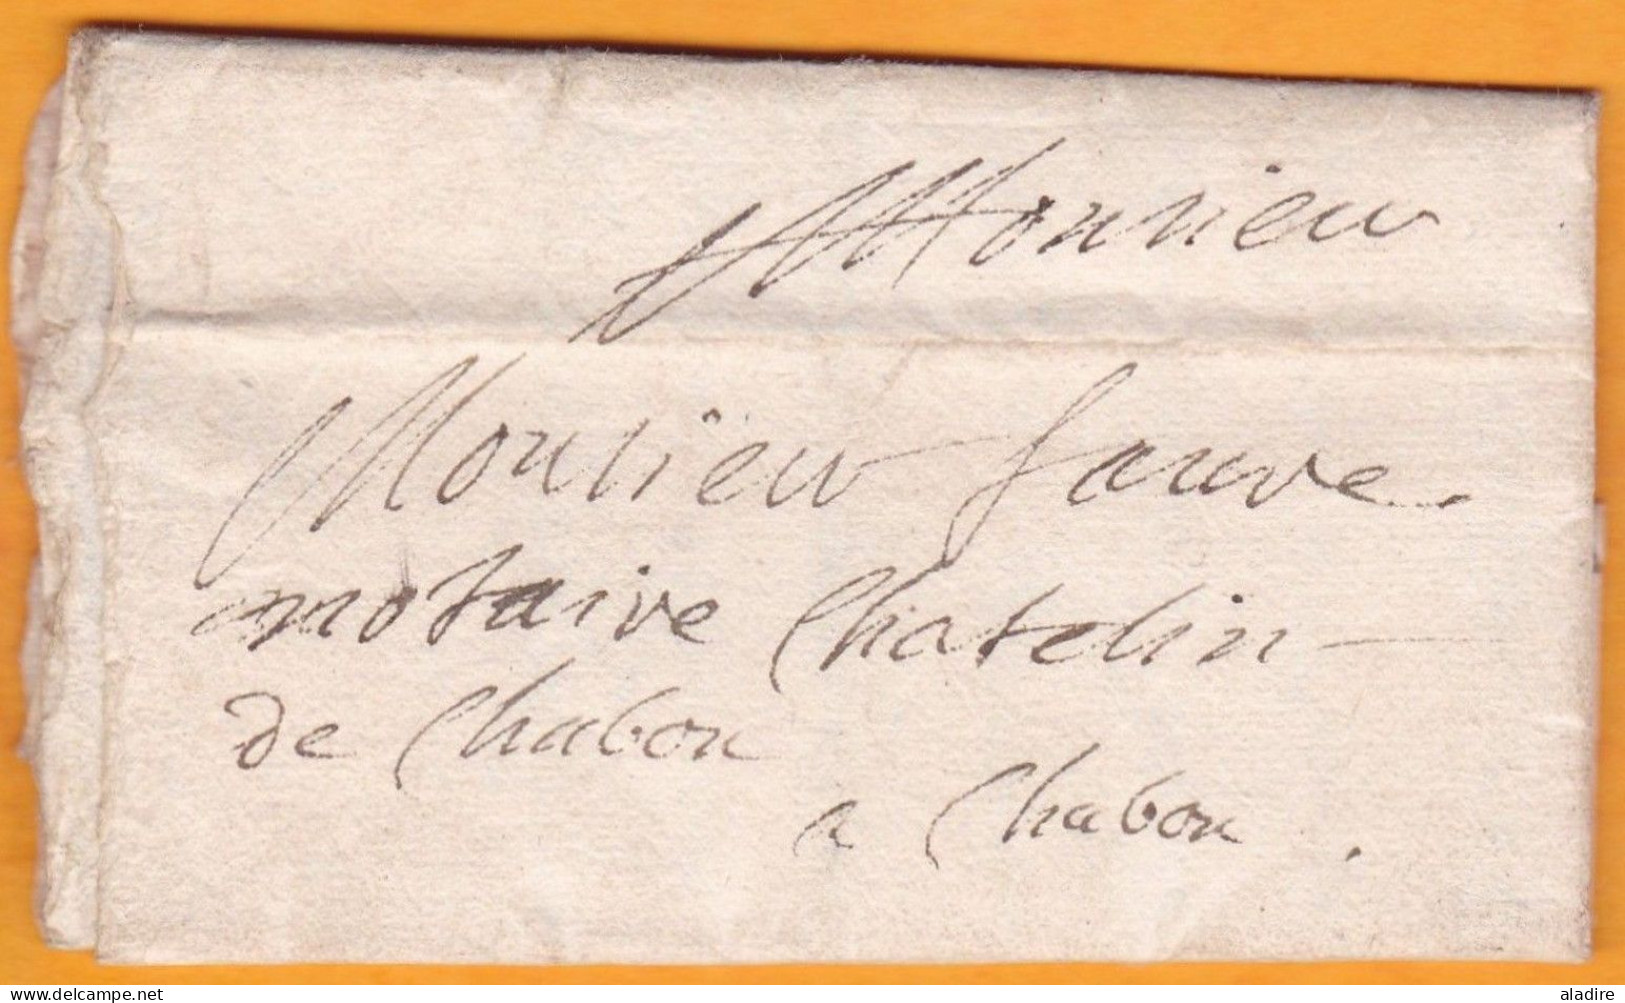 Monsieur
Monsieur fauve
notaire Chatelin
de Chabon
a Chabon.
delcampe.net
aladire